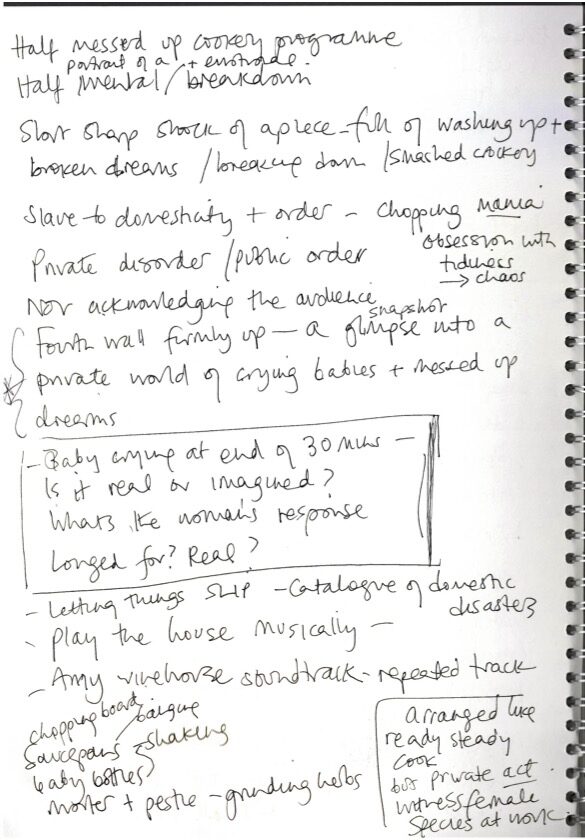 Half messed up cookery programme
portrait of a + emotrode
Half mental / breakdown
Short sharp shock of a piece - full of washing up +
broken dreams / breaking down / smashed crockery
Slave to domesticity + order - chopping mania
obsession with
tidiness
→ chaos
Private disorder / public order
Not acknowledging the audience
snapshot
Fourth wall firmly up - a glimpse into a
private world of crying babies + messed up
dreams
- Baby crying at end of 30 mins -
Is it real or imagined?
Whats the womans response
Longed for? Real?
- Letting things SLIP - Catalogue of domestic
disasters
- Play the house musically -
- Amy winehouse soundtrack - repeated track
chopping board
saucepans / banging
baby bottles shaking
morter + pestle - grinding herbs
arranged like
ready steady
cook
but private act
witness female
species at work.